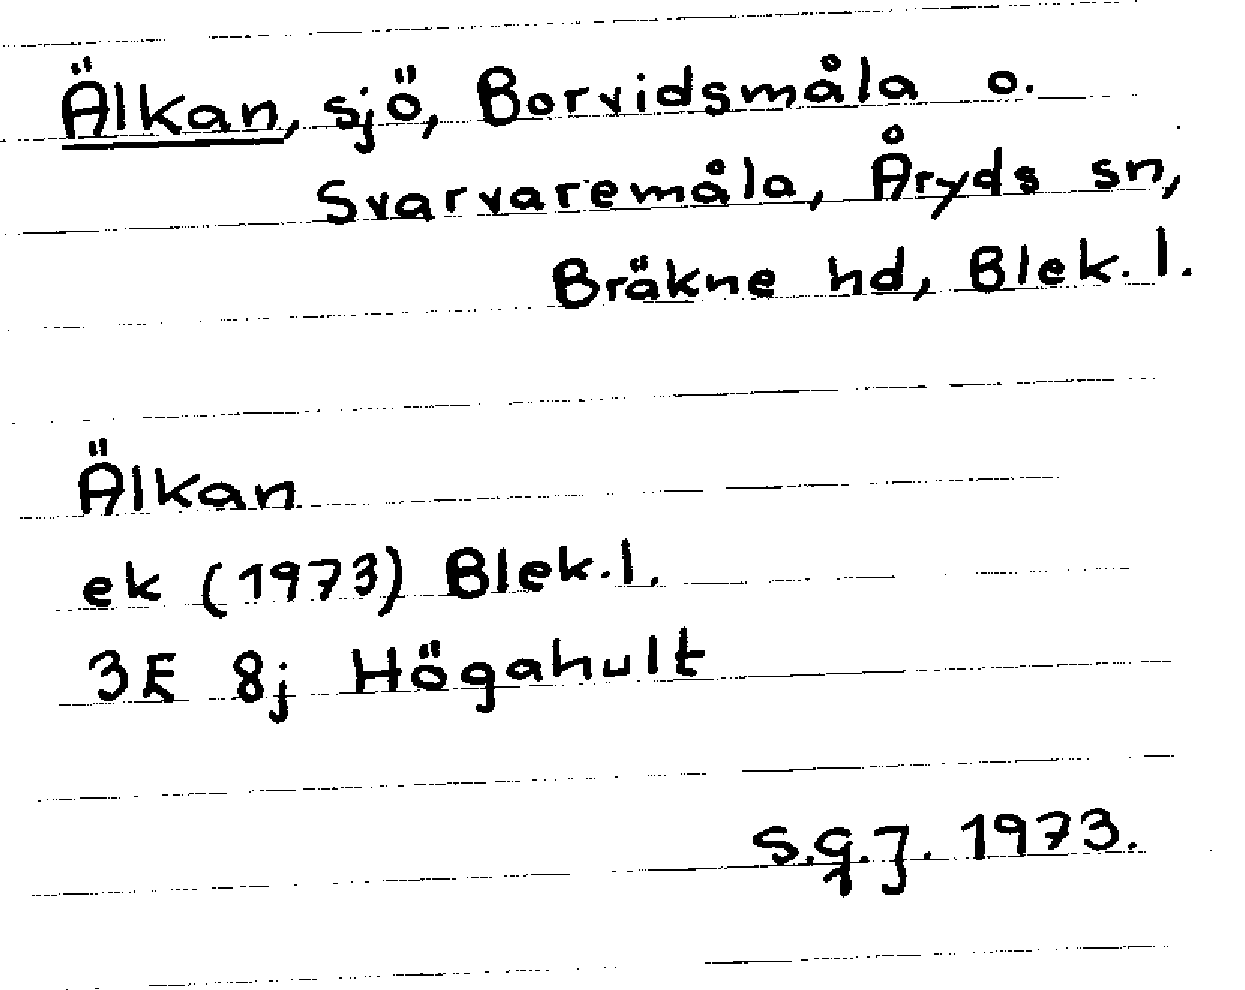 Älkan, sjö, Borvidsmåla o.
Svarvaremåla, Åryds sn,
Bräkne hd, Blek. l.
Älkan
ek (1973) Blek. l.
3E 8j Högahult
S.G.J. 1973.